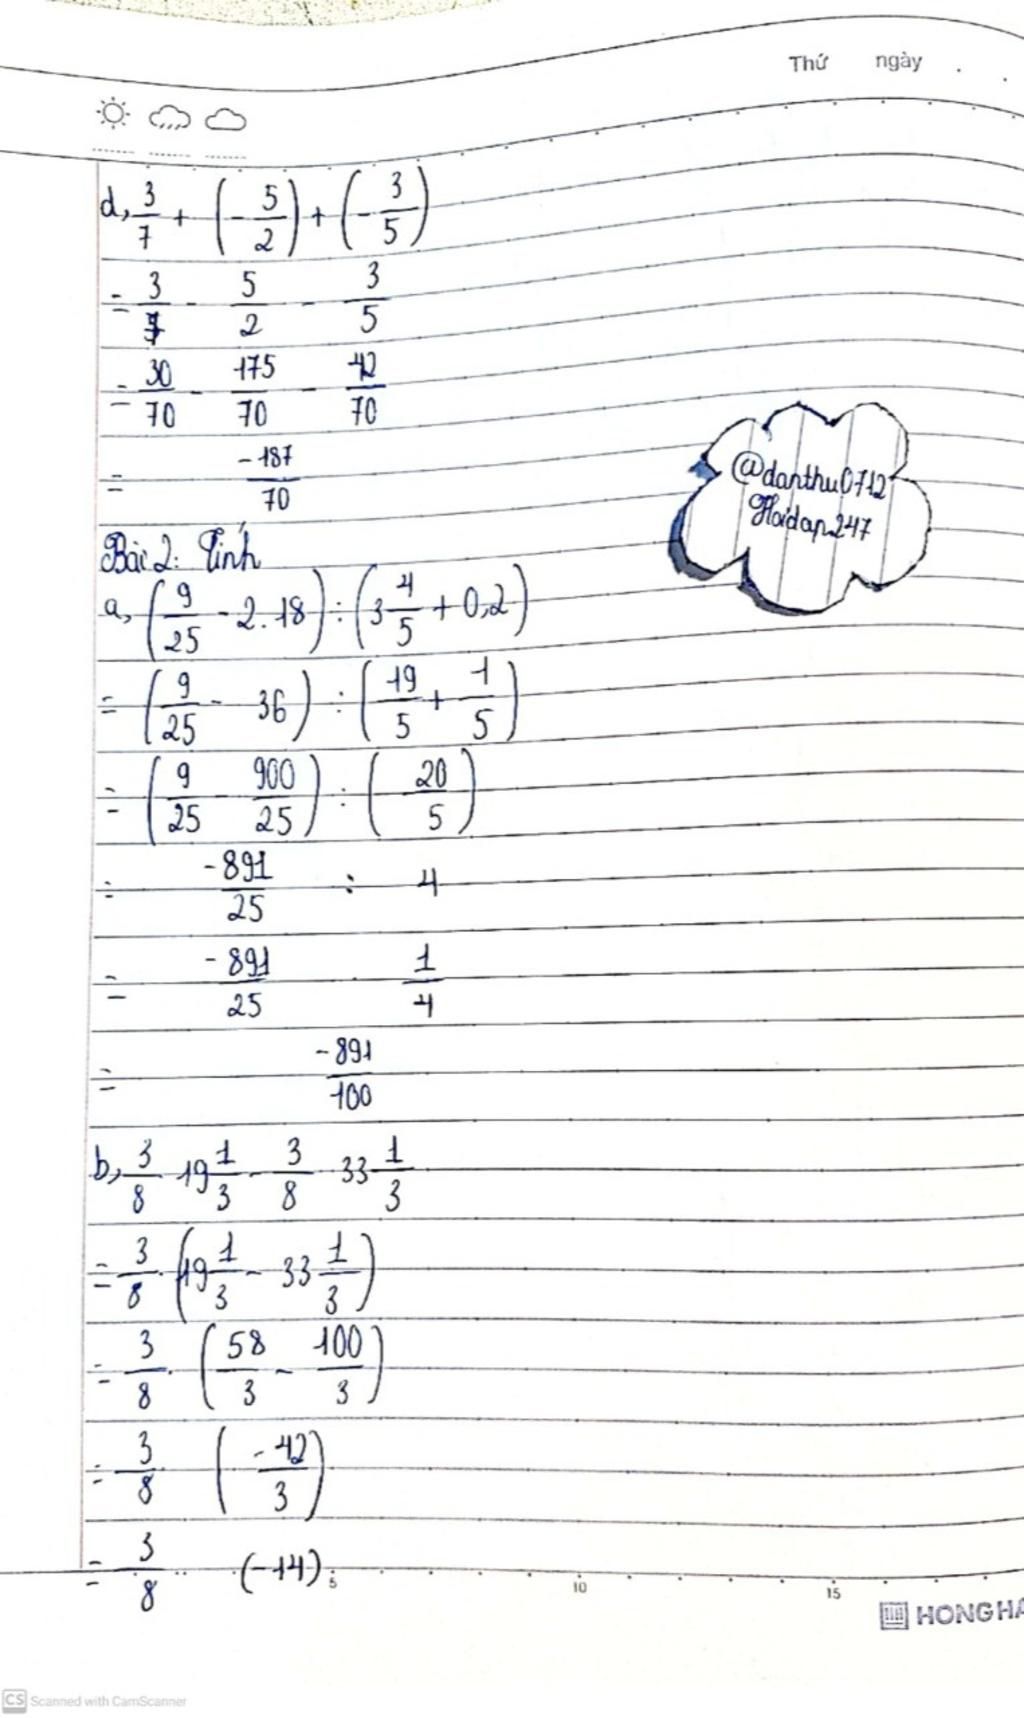 Thứ ngày
d, 3/7 + (-5/2) + (-3/5)
= 3/7 - 5/2 - 3/5
= 30/70 - 175/70 - 42/70
= -187/70
@danthu0712
Hoidap247
Bài 2: Tính
a, (9/25 - 2.18) : (3 4/5 + 0,2)
= (9/25 - 36) : (19/5 + 1/5)
= (9/25 - 900/25) : (20/5)
= -891/25 : 4
= -891/25 . 1/4
= -891/100
b, 3/8 . 19 1/3 - 3/8 . 33 1/3
= 3/8 . (19 1/3 - 33 1/3)
= 3/8 . (58/3 - 100/3)
= 3/8 (-42/3)
= 3/8 (-14)
5 10 15
HONG HA
CS Scanned with CamScanner